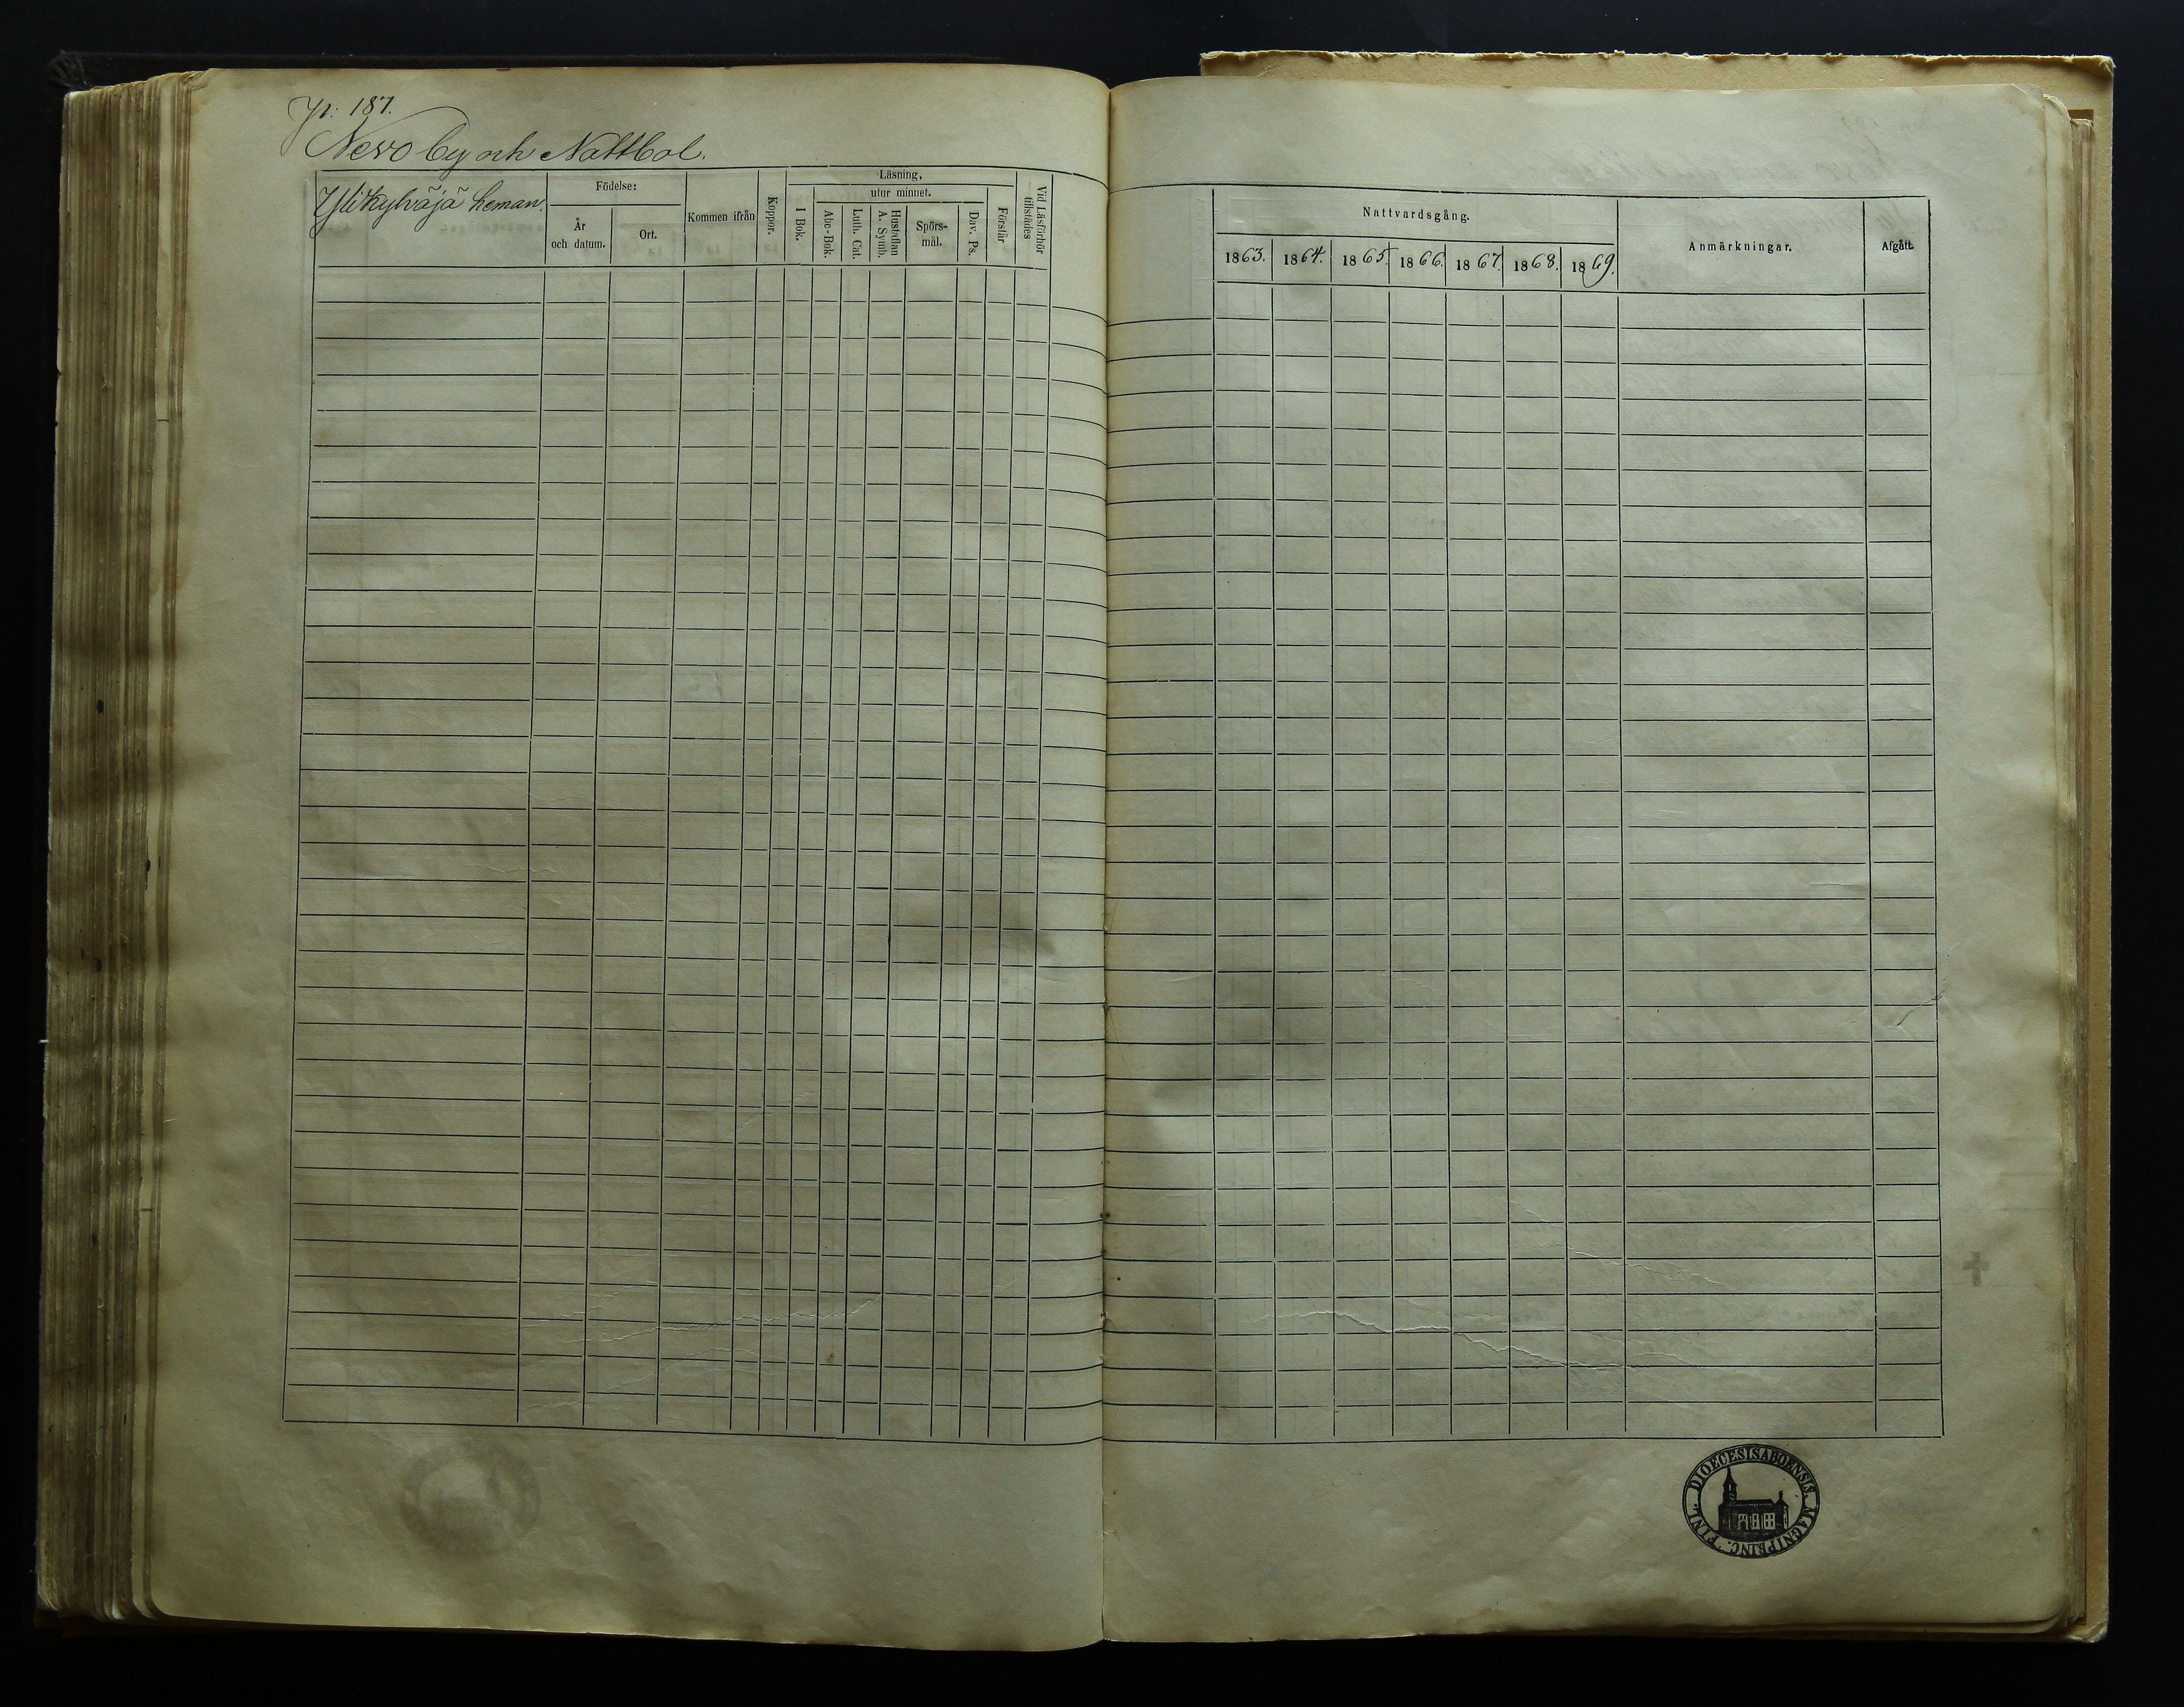 187.
Nevo by och Nattbol.
Ylikylväjä heman.
Födelse:
År och datum.
Ort.
Kommen ifrån
Koppor.
Läsning,
I Bok.
utur minnet.
Abc-Bok.
Luth. Cat.
Hustaflan A. Symb.
Spörs-mål.
Dav. Ps.
Förstår
Vid Läsförhör tillstädes
Nattvardsgång.
1863. 1864. 1865. 1866. 1867. 1868. 1869.
Anmärkningar.
Afgått.
DIOECESIS ABOENSIS. MAGNI PRINC. FINL.